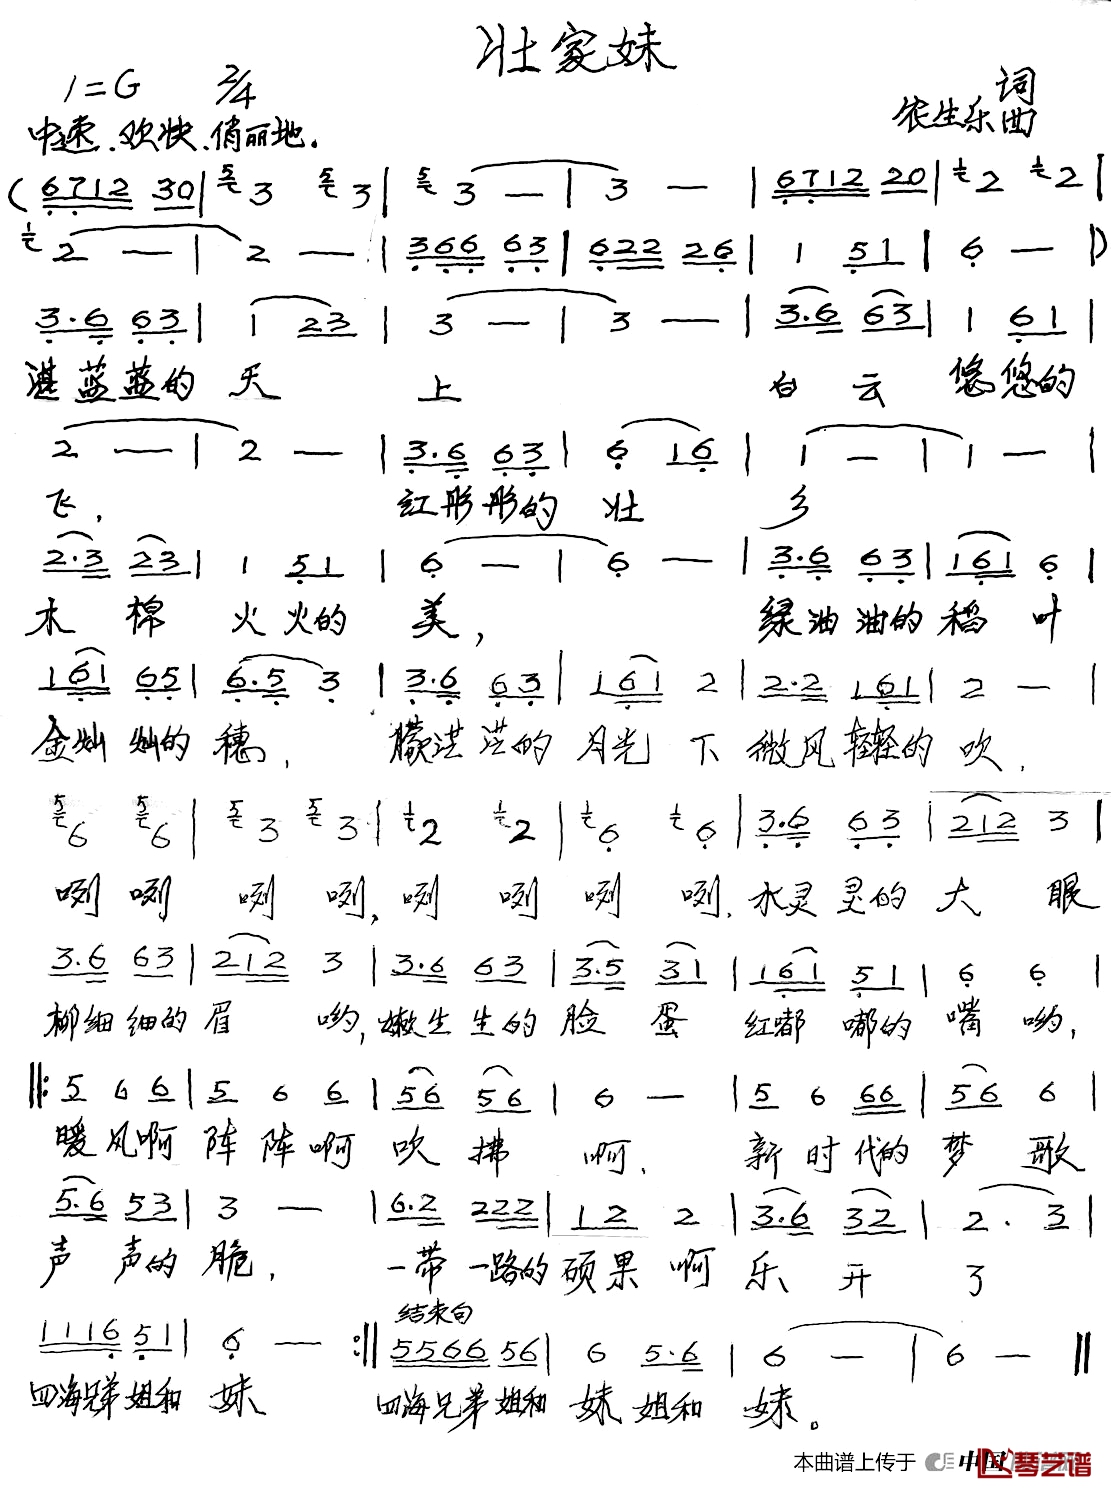 壮家妹
1=G 2/4
词
农生乐 曲
中速、欢快、俏丽地。
(6712 30 | 3 3 | 3 — | 3 — | 6712 20 | 2 2 |
2 — | 2 — | 366 63 | 622 26 | 1 51 | 6 — |)
3·6 63 | 1 23 | 3 — | 3 — | 3·6 63 | 1 61 |
湛蓝蓝的天 上 白云悠悠的
2 — | 2 — | 3·6 63 | 6 16 | 1 — | 1 — |
飞, 红彤彤的壮 乡
2·3 23 | 1 51 | 6 — | 6 — | 3·6 63 | 161 6 |
木棉火火的美, 绿油油的稻叶
161 65 | 6·5 3 | 3·6 63 | 161 2 | 2·2 161 | 2 — |
金灿灿的穗, 朦 的月光下微风轻轻的吹,
6 6 | 3 3 | 2 2 | 6 6 | 3·6 63 | 212 3 |
咧咧咧咧,咧咧咧咧,水灵灵的大眼
3·6 63 | 212 3 | 3·6 63 | 3·5 31 | 161 51 | 6 6 |
柳细细的眉哟,嫩生生的脸蛋红嘟嘟的嘴哟,
‖: 5 6 6 | 5 6 6 | 56 56 | 6 — | 5 6 66 | 56 6 |
暖风啊阵阵啊吹拂啊, 新时代的梦歌
5·6 53 | 3 — | 6·2 222 | 12 2 | 3·6 32 | 2· 3 |
声声的脆, 一带一路的硕果啊乐开了
结束句
1116 51 | 6 — :‖ 5566 56 | 6 5·6 | 6 — | 6 — ‖
四海兄弟姐和妹 四海兄弟姐和妹姐和妹。
本曲谱上传于 中国 琴艺谱